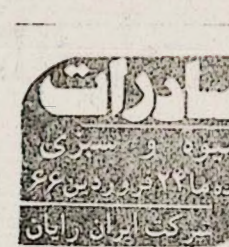 ـادرات
میوه و سبزی
۲۴ فروردین ۶۶
شرکت ایران رایان